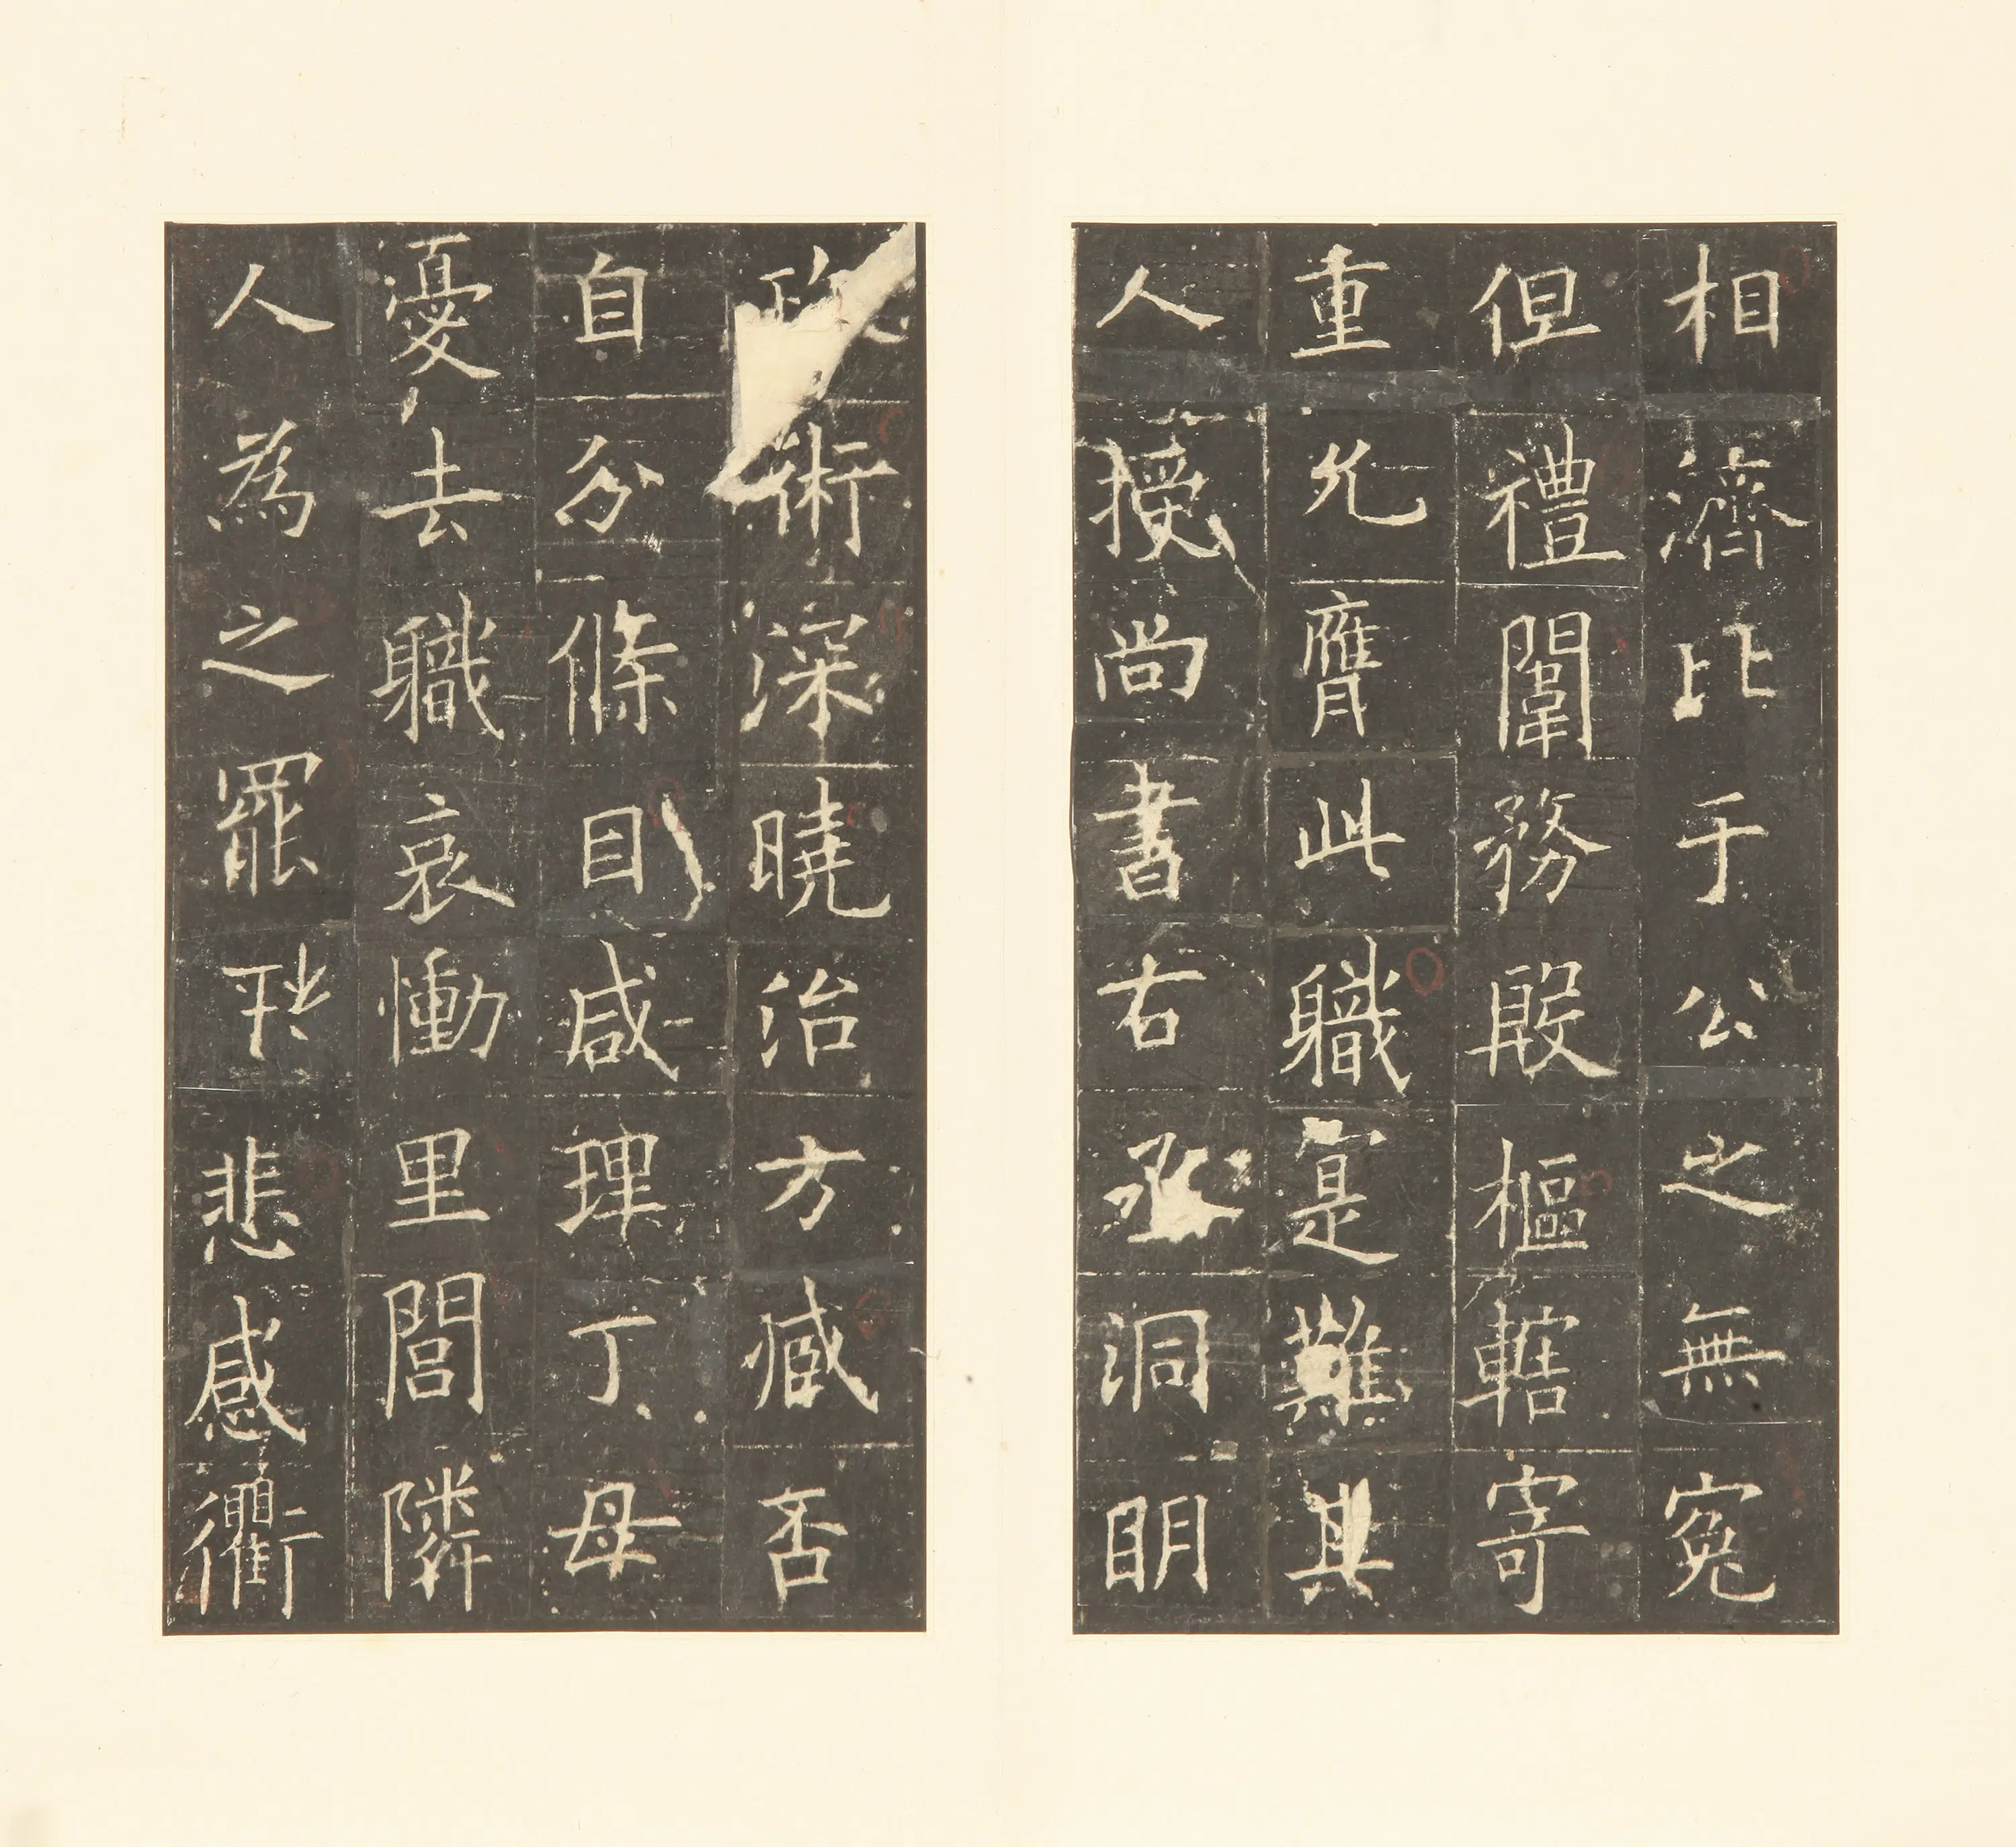 相濟比于公之無冤
但禮闈務殷樞轄寄
重允膺此職寔難其
人授尚書右丞洞明
政術深曉治方臧否
自分條目咸理丁母
憂去職哀慟里閭隣
人為之罷悲感衢